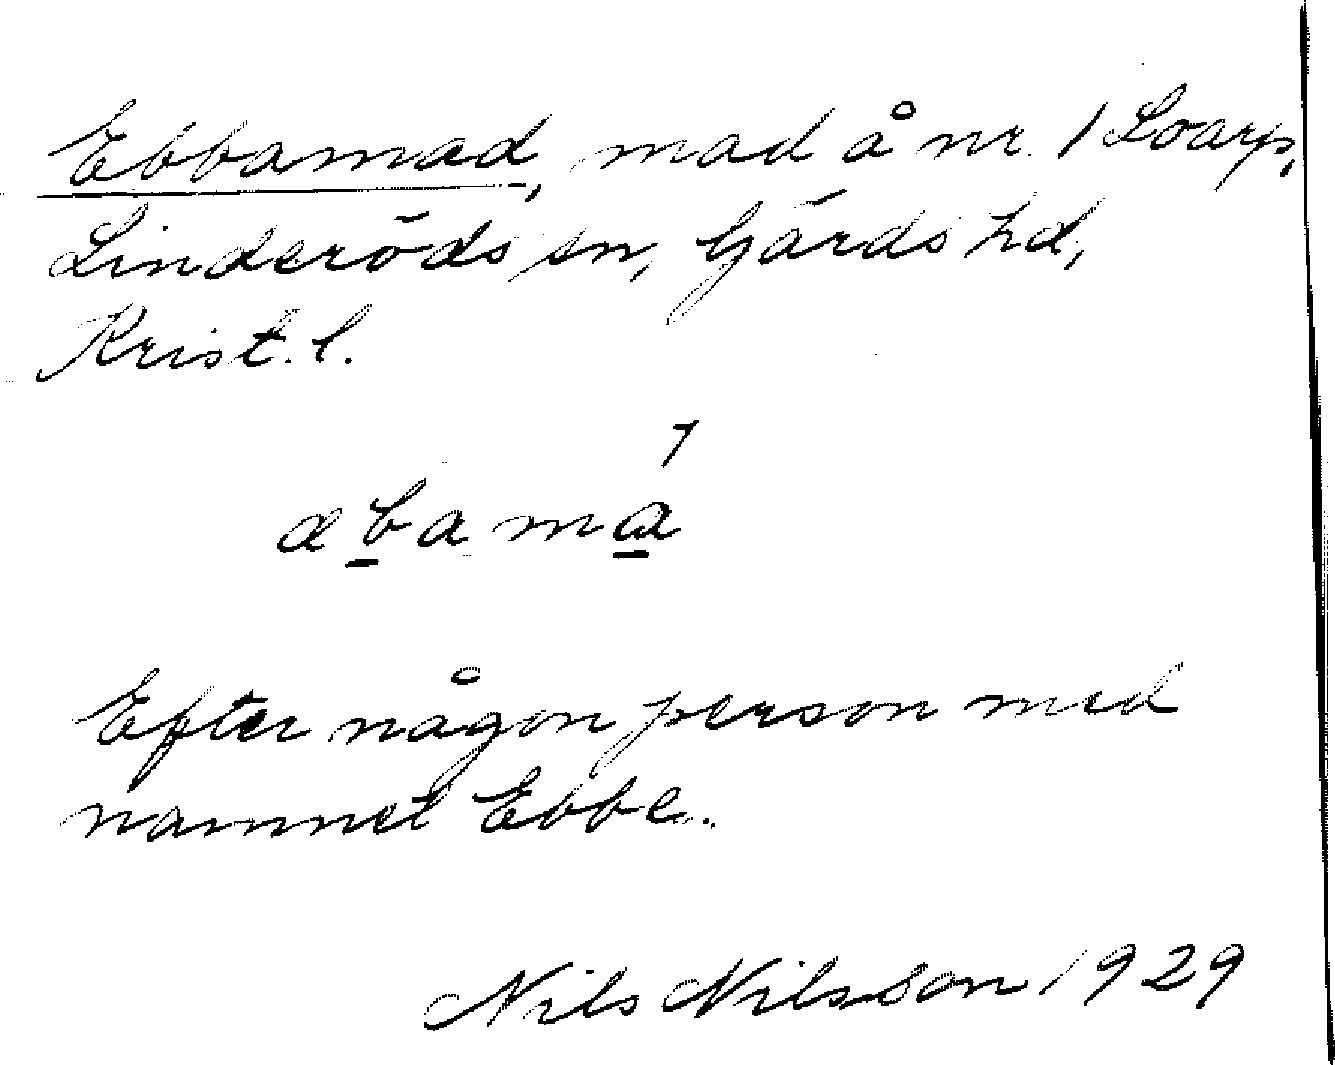 Ebbamad, mad å nr 1 Loarp,
Linderöds sn, Gärds hd,
Krist. l.
æbamɑ
Efter någon person med
namnet Ebbe.
Nils Nilsson 1929